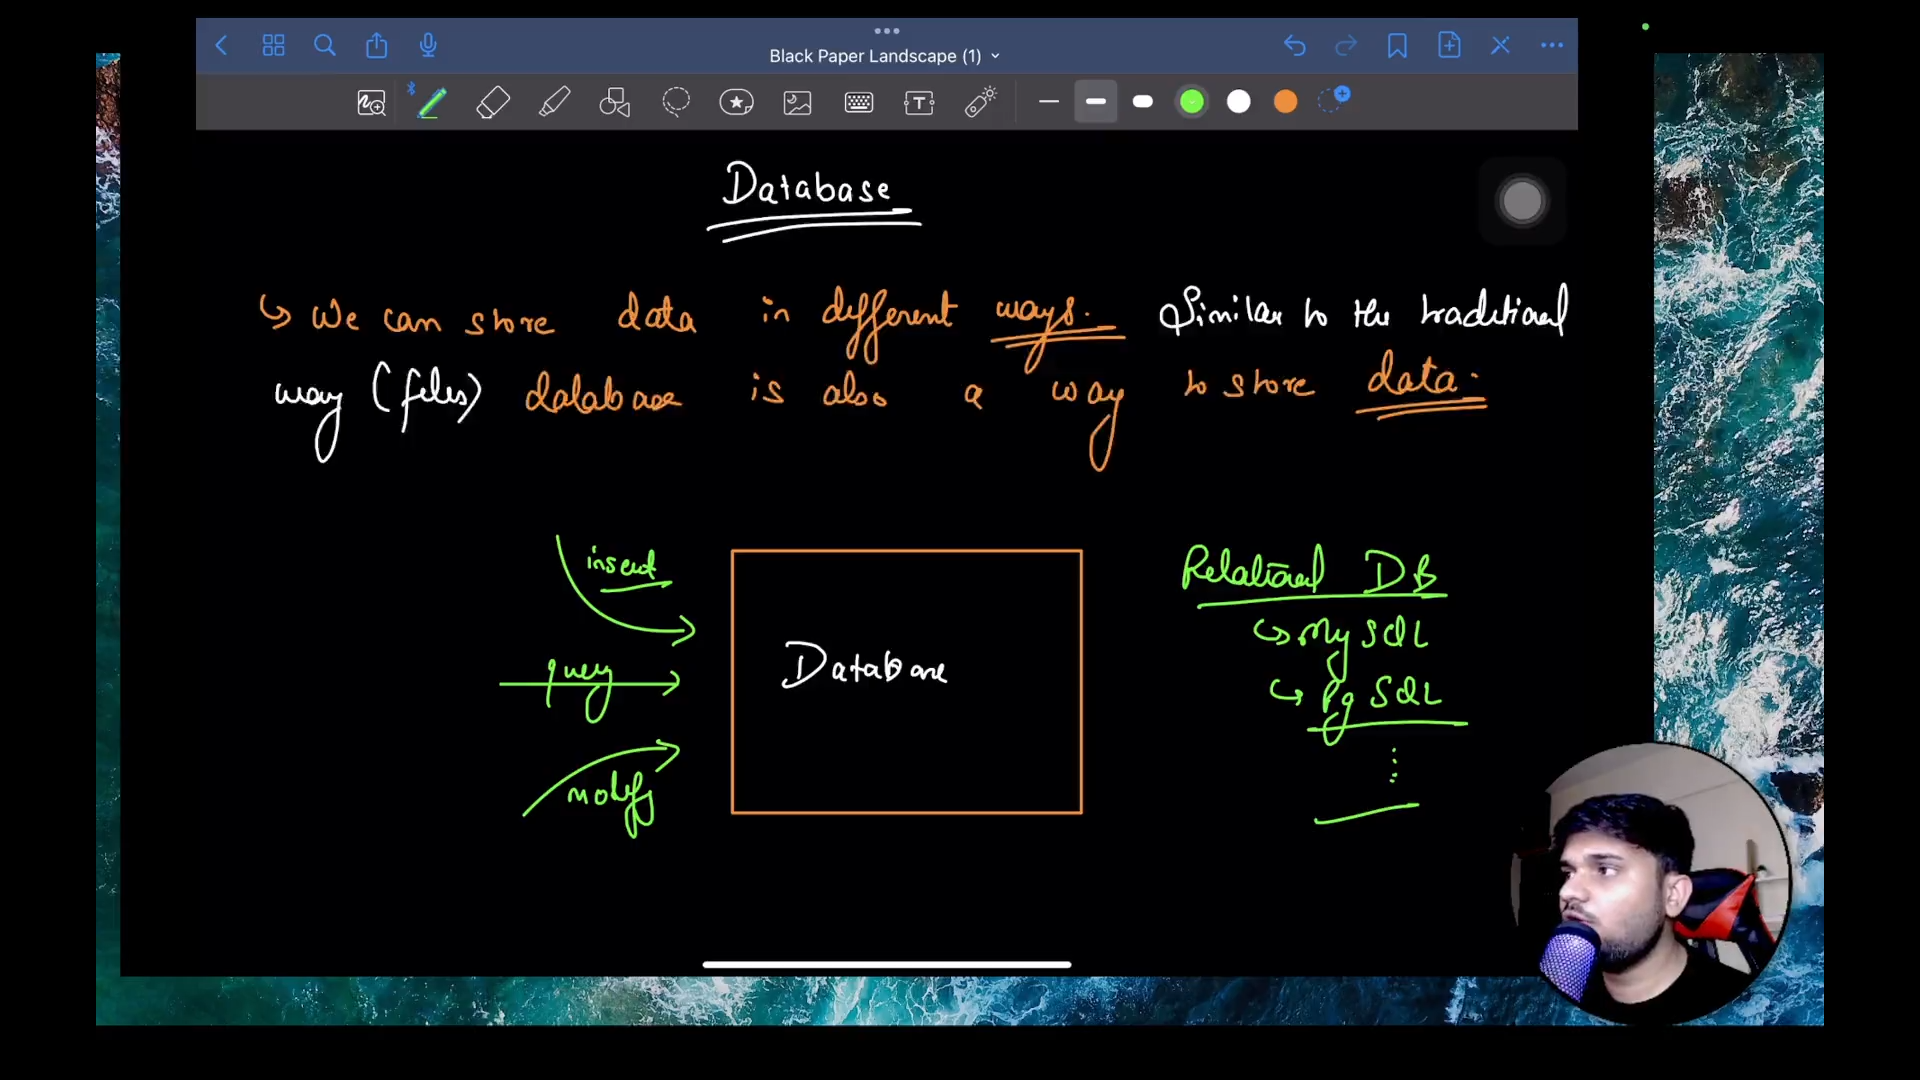 Black Paper Landscape (1)
Database
We can store data in different ways. Similar to the traditional
way (files) database is also a way to store data.
insert
query
modify
Database
Relational DB
MySQL
PgSQL